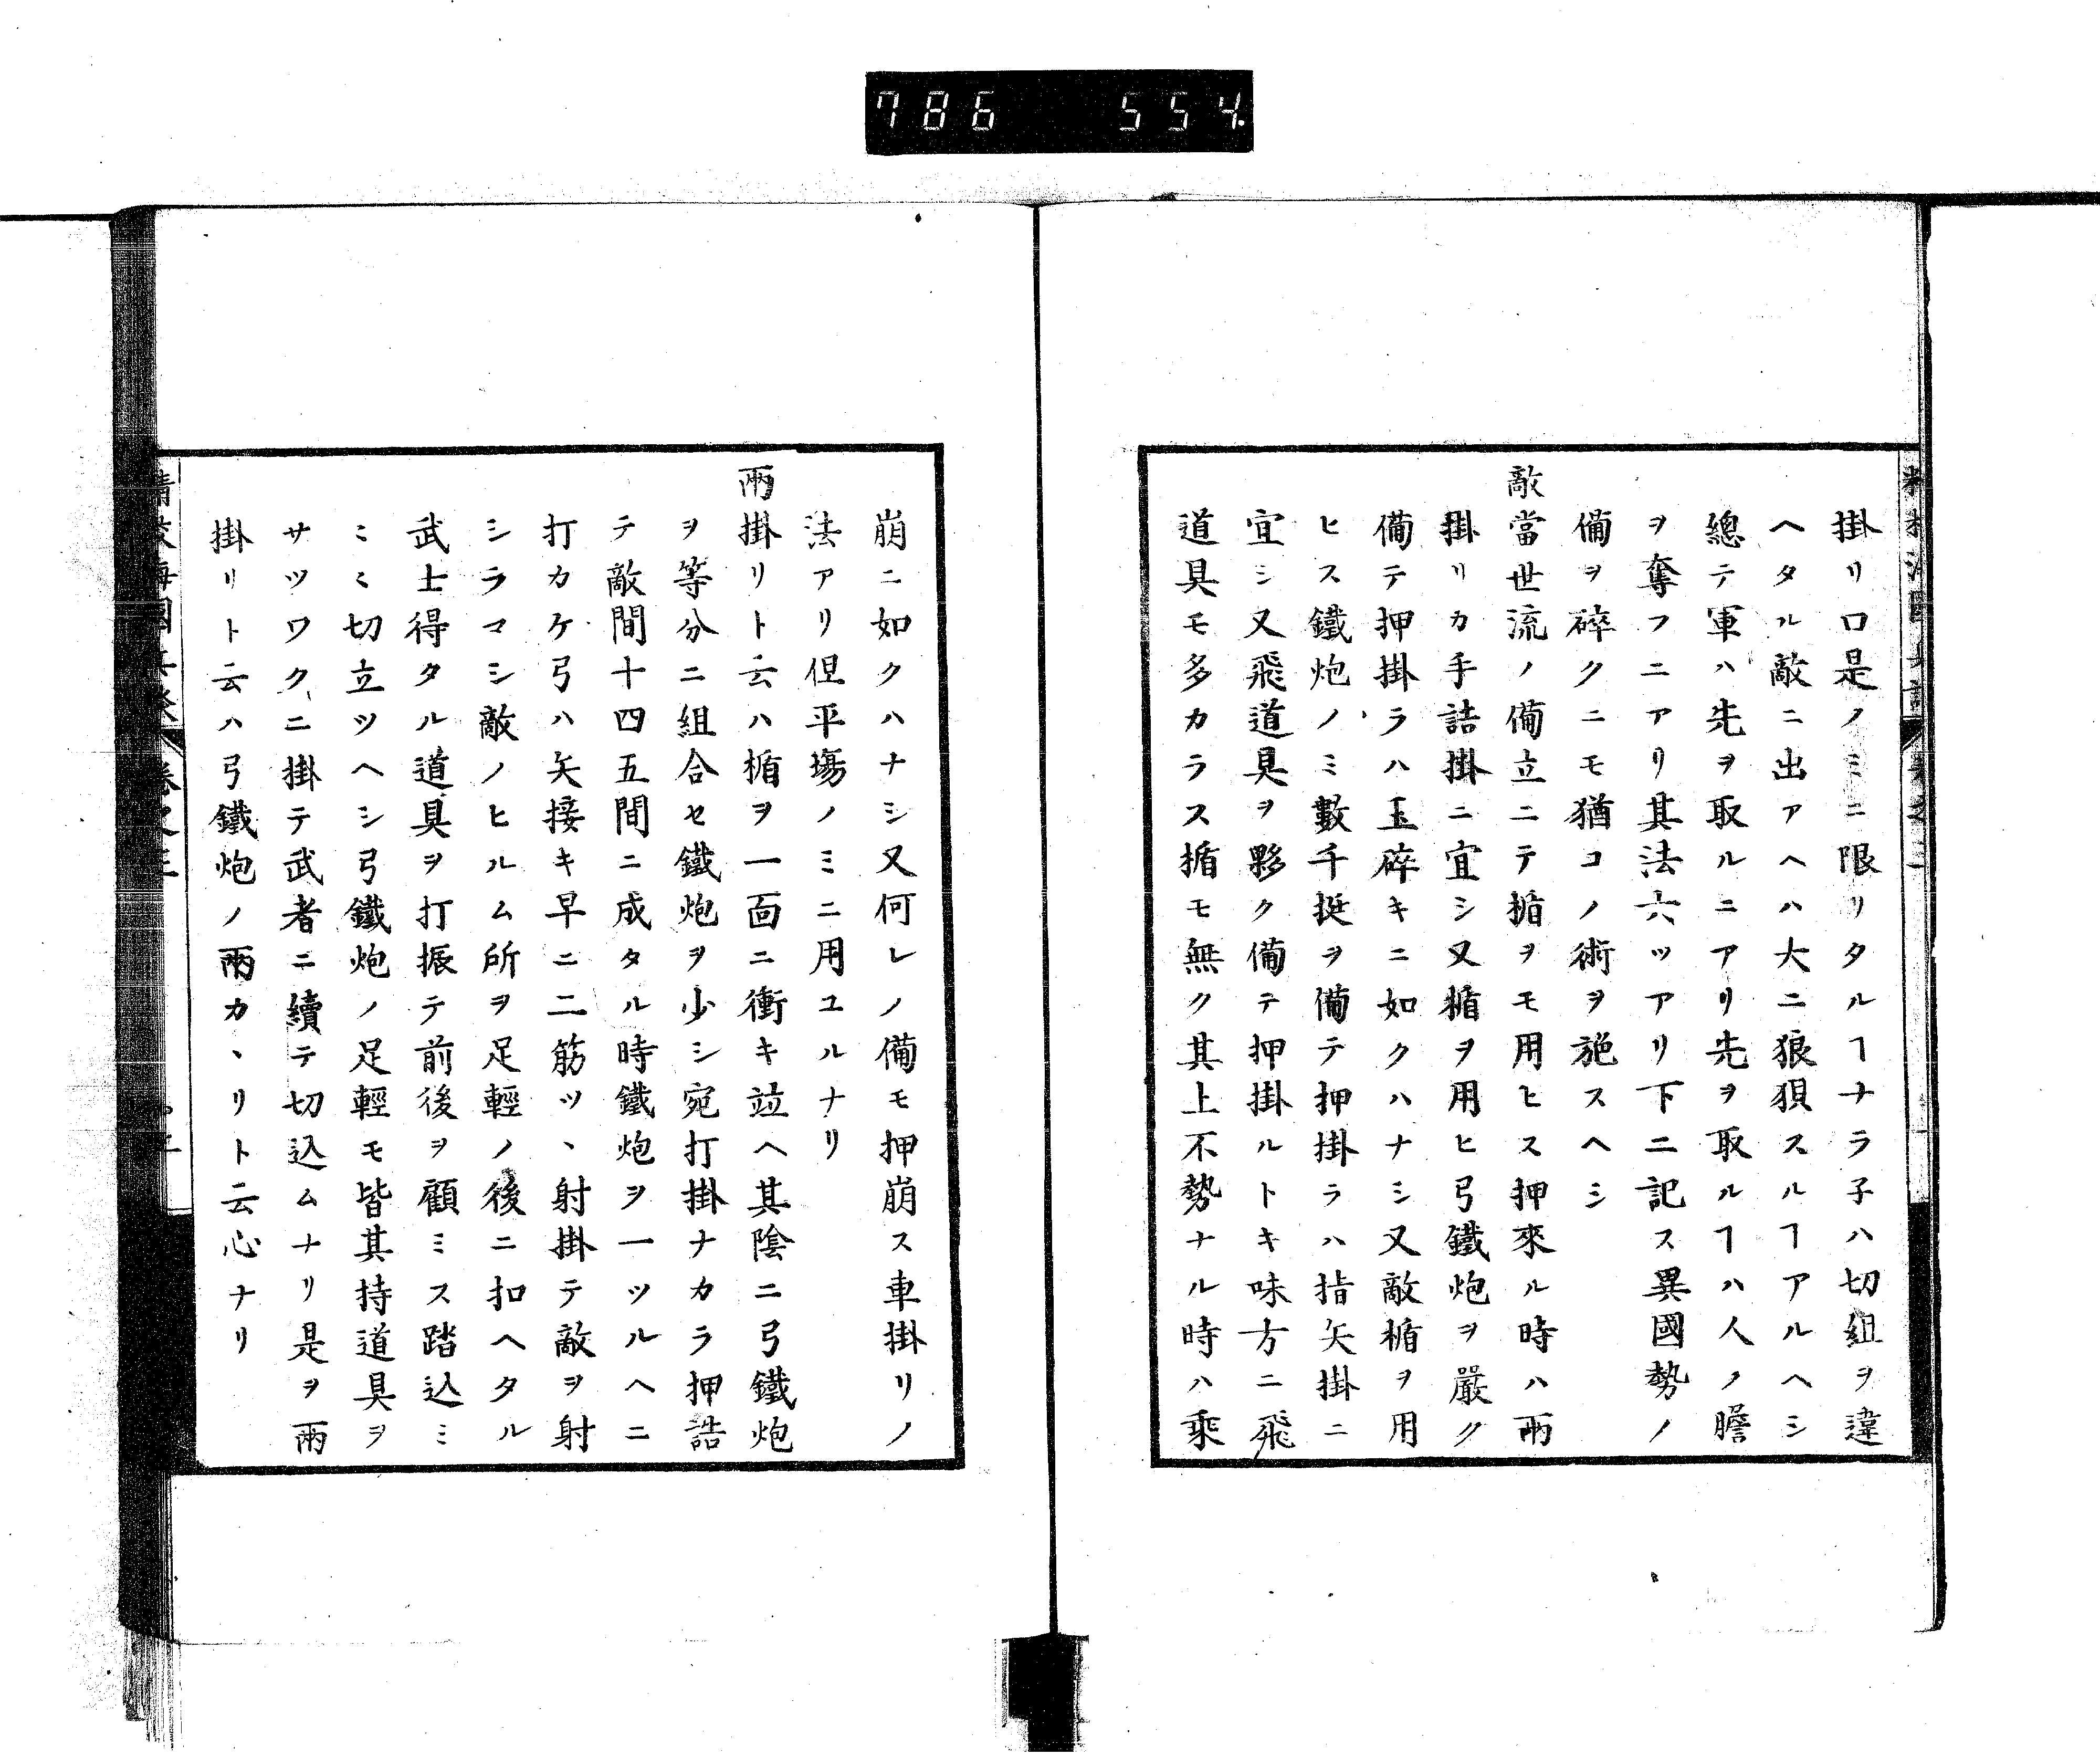 786 554.
掛リロ是ノミニ限リタルヿナラ子ハ切組ヲ違
ヘタル敵ニ出アヘハ大ニ狼狽スルヿアルヘシ
總テ軍ハ先ヲ取ルニアリ先ヲ取ルヿハ人ノ膽
ヲ奪フニアリ其法六ツアリ下ニ記ス異國勢ノ
備ヲ碎クニモ猶コノ術ヲ施スヘシ
敵當世流ノ備立ニテ楯ヲモ用ヒス押來ル時ハ兩
掛リカ手詰掛ニ宜シ又楯ヲ用ヒ弓鐵炮ヲ嚴ク
備テ押掛ラハ玉碎キニ如クハナシ又敵楯ヲ用
ヒス鐵炮ノミ數千挺ヲ備テ押掛ラハ指矢掛ニ
宜シ又飛道具ヲ夥ク備テ押掛ルトキ味方ニ飛
道具モ多カラス楯モ無ク其上不勢ナル時ハ乘
崩ニ如クハナシ又何レノ備モ押崩ス車掛リノ
法アリ但平塲ノミニ用ユルナリ
兩掛リト云ハ楯ヲ一面ニ衝キ竝ヘ其陰ニ弓鐵炮
ヲ等分ニ組合セ鐵炮ヲ少シ宛打掛ナカラ押詰
テ敵間十四五間ニ成タル時鐵炮ヲ一ツルヘニ
打カケ弓ハ矢接キ早ニ二筋ツヽ射掛テ敵ヲ射
シラマシ敵ノヒルム所ヲ足輕ノ後ニ扣ヘタル
武士得タル道具ヲ打振テ前後ヲ顧ミス踏込ミ
ミミ切立ツヘシ弓鐵炮ノ足輕モ皆其持道具ヲ
サツワクニ掛テ武者ニ續テ切込ムナリ是ヲ兩
掛リト云ハ弓鐵炮ノ兩カヽリト云心ナリ
精校海國兵談 卷之三